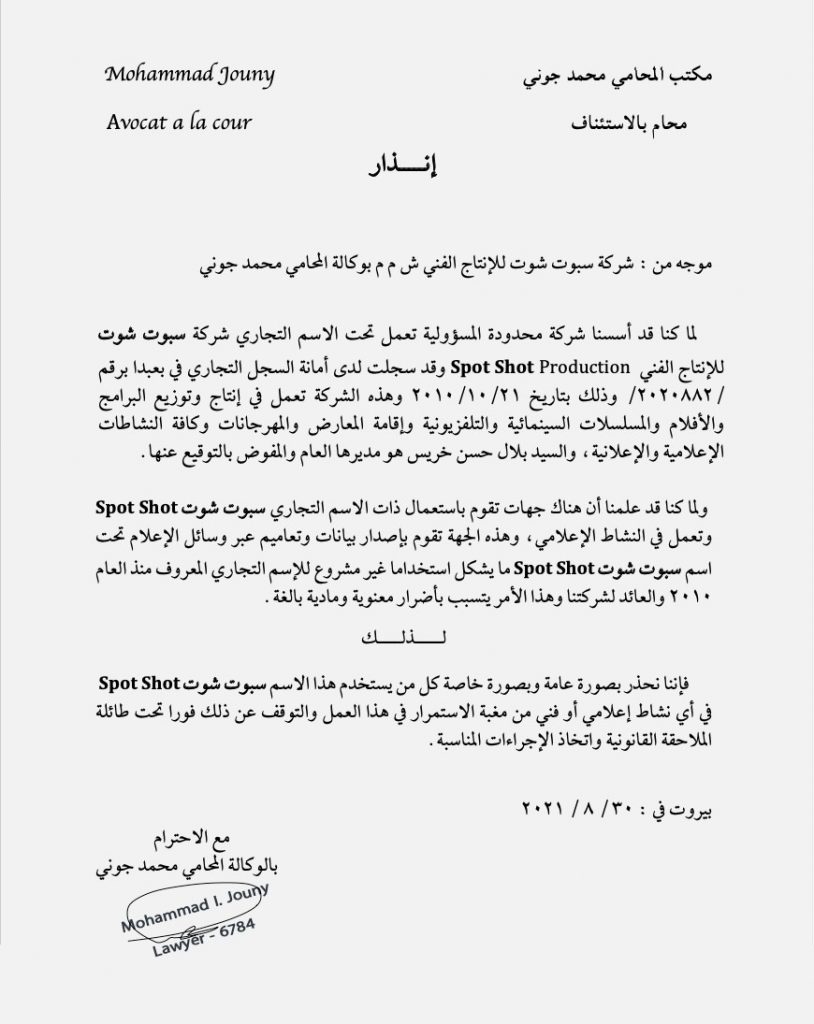 مكتب المحامي محمد جوني
Mohammad Jouny
محام بالاستئناف
Avocat a la cour
إنـــذار
موجه من : شركة سبوت شوت للإنتاج الفني ش م م بوكالة المحامي محمد جوني
لما كنا قد أسسنا شركة محدودة المسؤولية تعمل تحت الاسم التجاري شركة سبوت شوت
للإنتاج الفني Spot Shot Production وقد سجلت لدى أمانة السجل التجاري في بعبدا برقم
/٢٠٢٠٨٨٢/ وذلك بتاريخ ٢٠١٠/١٠/٢١ وهذه الشركة تعمل في إنتاج وتوزيع البرامج
والأفلام والمسلسلات السينمائية والتلفزيونية وإقامة المعارض والمهرجانات وكافة النشاطات
الإعلامية والإعلانية ، والسيد بلال حسن خريس هو مديرها العام والمفوض بالتوقيع عنها .
ولما كنا قد علمنا أن هناك جهات تقوم باستعمال ذات الاسم التجاري سبوت شوت Spot Shot
وتعمل في النشاط الإعلامي ، وهذه الجهة تقوم بإصدار بيانات وتعاميم عبر وسائل الإعلام تحت
اسم سبوت شوت Spot Shot ما يشكل استخداما غير مشروع للإسم التجاري المعروف منذ العام
٢٠١٠ والعائد لشركتنا وهذا الأمر يتسبب بأضرار معنوية ومادية بالغة .
لـــذلـــك
فإننا نحذر بصورة عامة وبصورة خاصة كل من يستخدم هذا الاسم سبوت شوت Spot Shot
في أي نشاط إعلامي أو فني من مغبة الاستمرار في هذا العمل والتوقف عن ذلك فورا تحت طائلة
الملاحقة القانونية واتخاذ الإجراءات المناسبة .
بيروت في : ٣٠ / ٨ / ٢٠٢١
مع الاحترام
بالوكالة المحامي محمد جوني
Mohammad I. Jouny
Lawyer - 6784